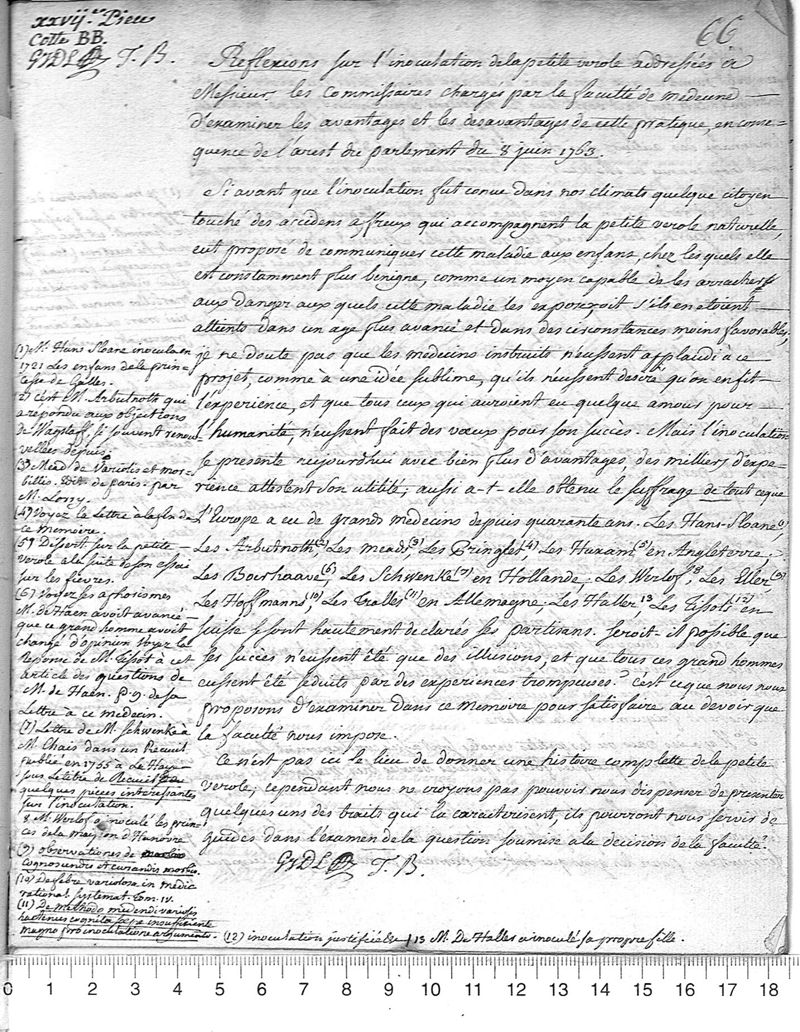 xxvij.e Piece
Cotte BB.
T. B.
66
Reflexions sur l'inoculation de la petite verole addressées à
Messieurs les Commissaires chargés par la faculté de medecine
d'examiner les avantages et les desavantages de cette pratique, en conse=
quence de l'arest du parlement du 8 juin 1763.
Si avant que l'inoculation fut conue dans nos climats quelque citoyen
touché des accidens affreux qui accompagnent la petite verole naturelle,
eut proposé de communiquer cette maladie aux enfans, chez les quels elle
est constamment plus benigne, comme un moyen capable de les arracher
aux danger aux quels cette maladie les exposeroit s'ils en etoient
atteints dans un age plus avancé et dans des circonstances moins favorables,
je ne doute pas que les medecins instruits n'eussent applaudi à ce
projet, comme à une idée sublime, qu'ils n'eussent desiré qu'on en fit
l'experience, et que tous ceux qui auroient eu quelque amour pour
l'humanité, n'eussent fait des vœux pour son succès. Mais l'inoculation
se presente aujourdhui avec bien plus d'avantages, des milliers d'expe=
rience attestent son utilité; aussi a-t-elle obtenu le suffrage de tout ceque
l'Europe a eu de grands medecins depuis quarante ans. Les Hans-Sloane,(1)
Les Arbutnoth,(2) Les meads(3), Les Pringles(4) Les Huxam(5) en Angleterre.
Les Boerhaave(6), Les Schwenke(7) en Hollande, Les Werlof,8 Les Eller,(9)
Les Hoffmanns,(10) Les Tralles(11) en Allemagne, Les Haller,13 Les Tissots(12) en
suisse sont hautement declarés ses partisans. Seroit-il possible que
ses succès n'eussent été que des illusions, et que tous ces grand hommes
eussent été seduits par des experiences trompeuses? c'est ceque nous nous
proposons d'examiner dans ce memoire pour satisfaire au devoir que
la faculté nous impose.
Ce n'est pas ici le lieu de donner une histoire complette de la petite
verole; cependant nous ne croyons pas pouvoir nous dispenser de presenter
quelques uns des traits qui la caracterisent, ils pourront nous servir de
guides dans l'examen de la question soumise à la decision de la faculté.
T. B.
(1) Mr. Hans Sloane inocula en
1721 Les enfans de la prin
cesse de Galles.
2) c'est M. Arbutnoth qui
a repondu aux objections
de Wagstaff, si souvent renou
vellées depuis.
(3) Mead de Variolis et mor=
billis. Edit. de paris. par
M. Lorry.
(4) Voyez la lettre à la fin de
ce memoire.
(5) Dissert. sur la petite
verole à la suite de son essai
sur les fièvres.
(6) Voyez ses aphorismes
M. de Haen avoit avancé
que ce grand homme avoit
changé d'opinion. Voyez la
reponse de M. Tissot à cet
article des questions de
M. de Haen. p. 9. de sa
Lettre à ce medecin.
(7) Lettre de M. Schwenke à
M. Chais dans un Recueil
publié en 1755 à Le Haye
sous Le titre de Recueil de
quelques pieces interessantes
sur l'inoculation.
8. M. Werlof a inoculé les prin
ces de la maison d'Hanovre.
(9) observationes de
cognoscendis et curandis morbis.
(10) De febre variolosa in medic
rational. systemat. tom. IV.
(11) De methodo medendi variolis
hactenus cognita sæpe insufficiente
magno pro inoculatione argumento.
(12) inoculation justifiée &c
13 M. De Haller a inoculé sa propre fille.
0 1 2 3 4 5 6 7 8 9 10 11 12 13 14 15 16 17 18